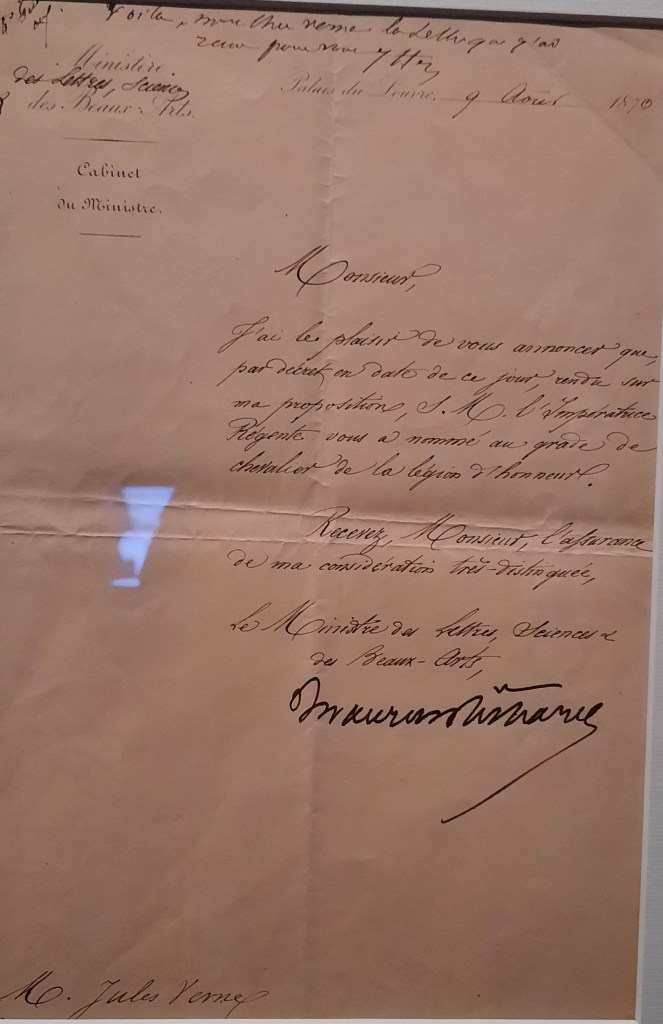 Voilà, mon cher Verne la lettre que j'ai
pour vous
Ministère
des Lettres, Sciences
& des Beaux-Arts.
Palais du Louvre, 9 Août 1870
Cabinet
du Ministre.
Monsieur,
J'ai le plaisir de vous annoncer que,
par décret en date de ce jour, rendu sur
ma proposition, S. M. l'Impératrice
Régente vous a nommé au grade de
chevalier de la légion d'honneur.
Recevez, Monsieur, l'assurance
de ma considération très-distinguée,
Le Ministre des Lettres, Sciences &
des Beaux-Arts,
Maurice Richard
M. Jules Verne